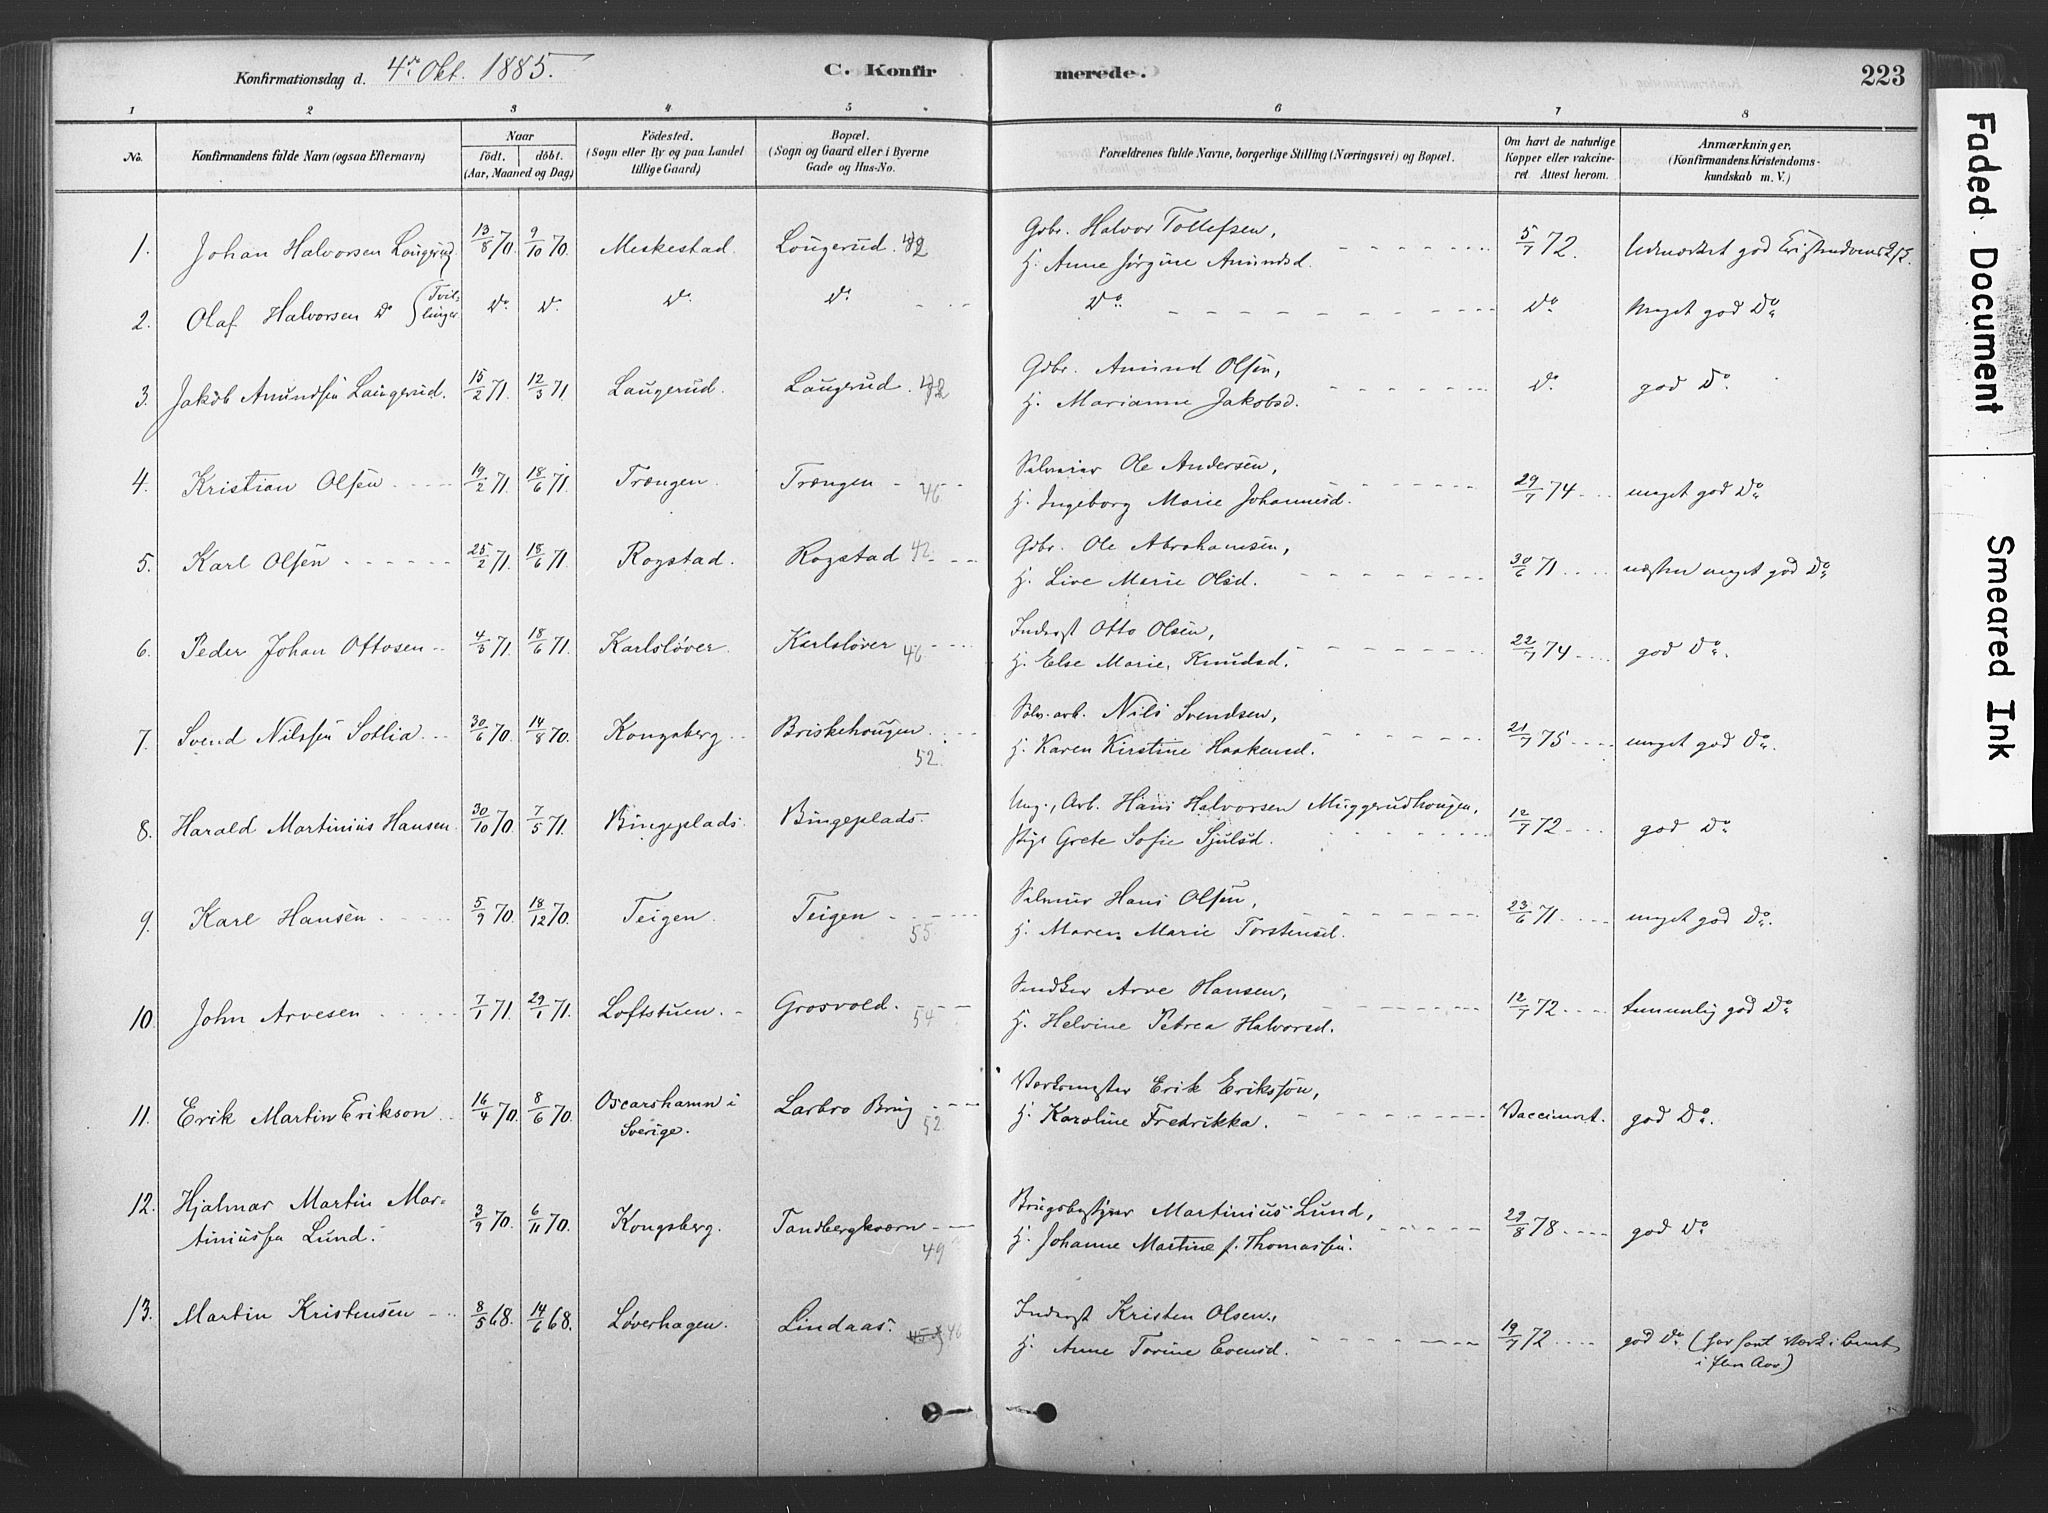 Konfirmationsdag d. 4de Okt. 1885. C. Konfir merede. 223
1 2 3 4 5 6 7 8
No. Konfirmandens fulde Navn (ogsaa Efternavn) Naar født. døbt. (Aar, Maaned og Dag) Födested. (Sogn eller By og paa Landet tillige Gaard) Bopæl. (Sogn og Gaard eller i Byerne Gade og Hus-No. Forældrenes fulde Navne, borgerlige Stilling (Næringsvei) og Bopæl. Om havt de naturlige Kopper eller vakcineret. Attest herom. Anmærkninger. (Konfirmandens Kristendomskundskab m. V.)
1. Johan Halvorsen Laugerud 13/8 70. 9/10 70. Meskestad. Laugerud. Gbr. Halvor Tollefsen, 5/7 72. Udmærket god
H. Anne Jørgine Amundsd.
2. Olaf Halvorsen Do (Tvillinger Do Do Do Do Do Do Meget god Do
3. Jakob Amundsen Laugerud. 15/2 71. 12/3 71. Laugerud. Laugerud. Gbr. Amund Olsen, Do god Do
H. Marianne Jakobsd.
4. Kristian Olsen 19/2 71. 18/6 71. Trængen. Trængen 46 Ole Andersen, 29/7 74 meget god Do
H. Ingeborg Marie Johannesd.
5. Karl Olsen 25/2 71. 18/6 71. Rogstad. Rogstad 42. Gbr. Ole Abrahamsen, 30/6 71 næsten meget god Do
H. Live Marie Olsd.
6. Peder Johan Ottosen 4/3 71. 18/6 71. Karlsløver. Karlsløver 46 Inderst Otto Olsen, 22/7 74 god Do
H. Else Marie Knudsd.
7. Svend Nilssen Sotlia 30/6 70. 14/8 70. Kongsberg Briskehougen. 52. Sølv.arb. Nils Svendsen, 21/7 75 meget god Do
H. Karen Kirstine Haakensd.
8. Harald Martinius Hansen. 30/10 70. 7/5 71. Bingeplads Bingeplads. Ung., Arb. Hans Halvorsen Muggerudhougen, 12/7 72 god Do
Pige Grete Sofie Sjulsd.
9. Karl Hansen 5/9 70. 18/12 70. Teigen. Teigen 55 Hans Olsen, 23/6 71 meget god Do
H. Maren Marie Torstensd.
10. John Arvesen 7/1 71. 29/1 71. Loftstuen. Grosvold. 54 Arve Hansen, 12/7 72 temmelig god Do
H. Helvine Petrea Halvorsd.
11. Erik Martin Erikson 16/4 70. 8/6 70. Oscarshamn i Sverige. Larbro Brug 52 Værksmester Erik Eriksson, Vaccineret. god Do
H. Karoline Fredrikka.
12. Hjalmar Martin Mar- 3/9 70. 6/11 70. Kongsberg. Tandbergkværn 49 Brugsbestyrer Martinius Lund, 29/8 78 god Do
tiniussen Lund. H. Johanne Martine f. Thomassen.
13. Martin Kristensen 8/5 68. 14/6 68. Løverhagen. Lindaas. 46 Inderst Kristen Olsen, 19/7 72 god Do
H. Anne Torine Evensd.
Faded Document
Smeared Ink